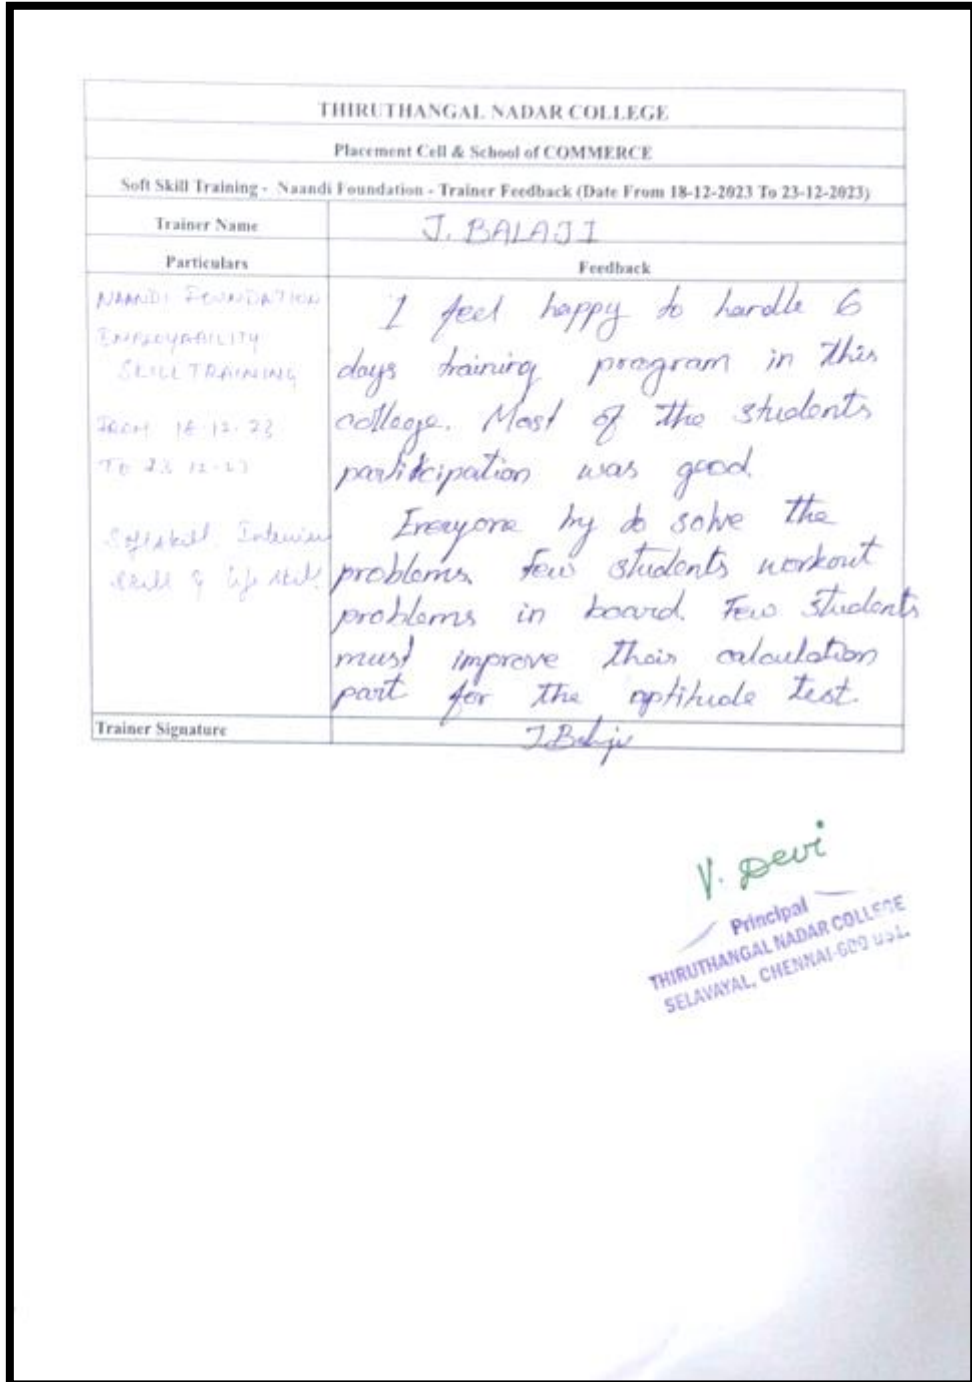 THIRUTHANGAL NADAR COLLEGE
Placement Cell & School of COMMERCE
Soft Skill Training - Naandi Foundation - Trainer Feedback (Date From 18-12-2023 To 23-12-2023)
Trainer Name
J. BALAJI
Particulars
Feedback
NAANDI FOUNDATION
EMPLOYABILITY
SKILL TRAINING
FROM 18-12-23
TO 23-12-23
Softskill, Interview
skill & life skill.
I feel happy to handle 6
days training program in this
college. Most of the students
participation was good.
Everyone try to solve the
problems. Few students workout
problems in board. Few students
must improve their calculation
part for the aptitude test.
Trainer Signature
J.Balaji
V. Devi
Principal
THIRUTHANGAL NADAR COLLEGE
SELAVAYAL, CHENNAI-600 051.